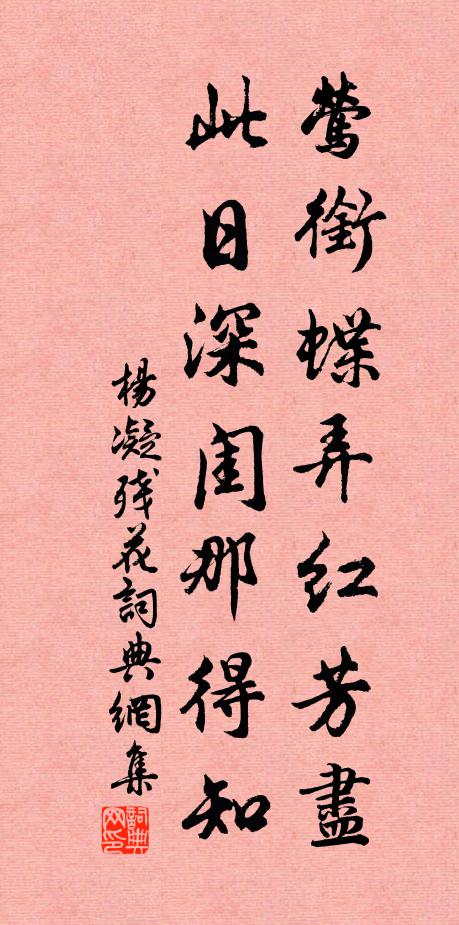 鶯銜蝶弄紅芳盡
此日深閨那得知
楊凝殘花詞典網集
詞典网印